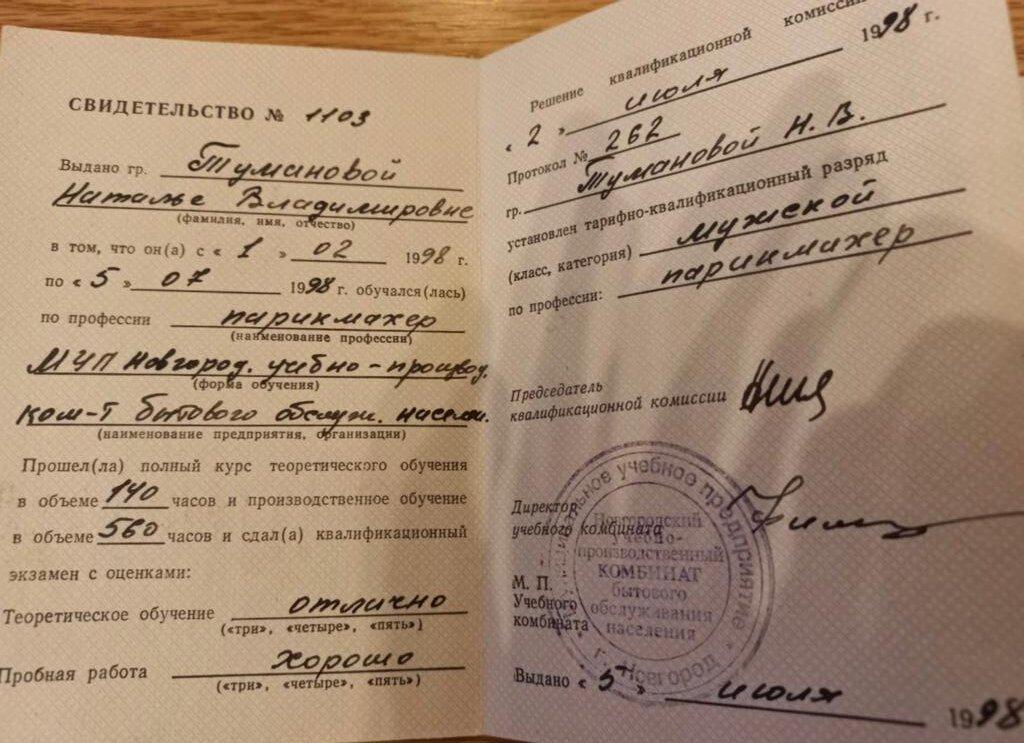 СВИДЕТЕЛЬСТВО № 1103
Выдано гр. Тумановой
Наталье Владимировне
(фамилия, имя, отчество)
в том, что он(а) с « 1 » 02 1998 г.
по « 5 » 07 1998 г. обучался(лась)
по профессии парикмахер
(наименование профессии)
МУП Новгород. учебно-производ.
(форма обучения)
ком-т бытового обслуж. населен.
(наименование предприятия, организации)
Прошел(ла) полный курс теоретического обучения
в объеме 140 часов и производственное обучение
в объеме 560 часов и сдал(а) квалификационный
экзамен с оценками:
Теоретическое обучение отлично
(«три», «четыре», «пять»)
Пробная работа хорошо
(«три», «четыре», «пять»)
Решение квалификационной комиссии
« 2 » июля 1998 г.
Протокол № 262
гр. Тумановой Н. В.
установлен тарифно-квалификационный разряд
(класс, категория) мужской
по профессии: парикмахер
Председатель
квалификационной комиссии
Директор
учебного комбината
М. П.
Учебного
комбината
Муниципальное учебное предприятие
г. Новгород
Новгородский
учебно-
производственный
КОМБИНАТ
бытового
обслуживания
населения
Выдано « 5 » июля 1998